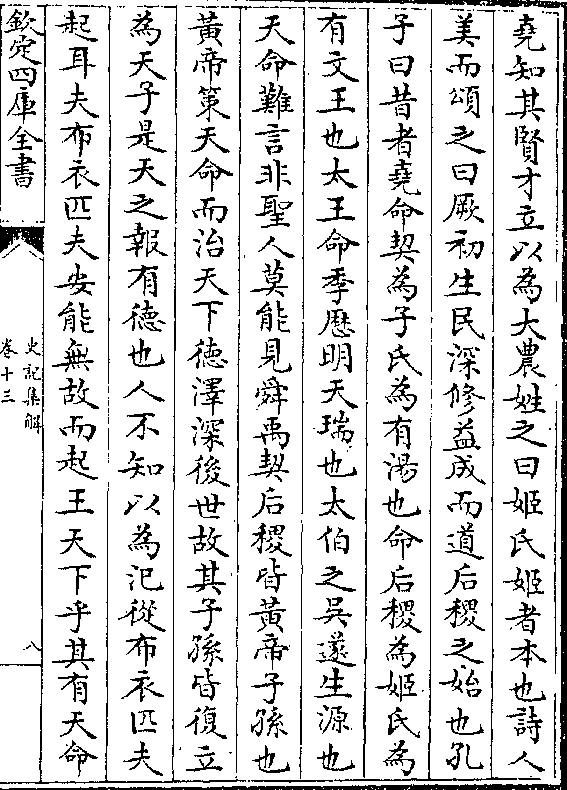 堯知其賢才立以為大農姓之曰姬氏姬者本也詩人
美而頌之曰厥初生民深修益成而道后稷之始也孔
子曰昔者堯命契為子氏為有湯也命后稷為姬氏為
有文王也太王命季歷明天瑞也太伯之吳遂生源也
天命難言非聖人莫能見舜禹契后稷皆黃帝子孫也
黃帝策天命而治天下德澤深後世故其子孫皆復立
為天子是天之報有德也人不知以為汜從布衣匹夫
起耳夫布衣匹夫安能無故而起王天下乎其有天命
欽定四庫全書
史記集解
卷十三
八